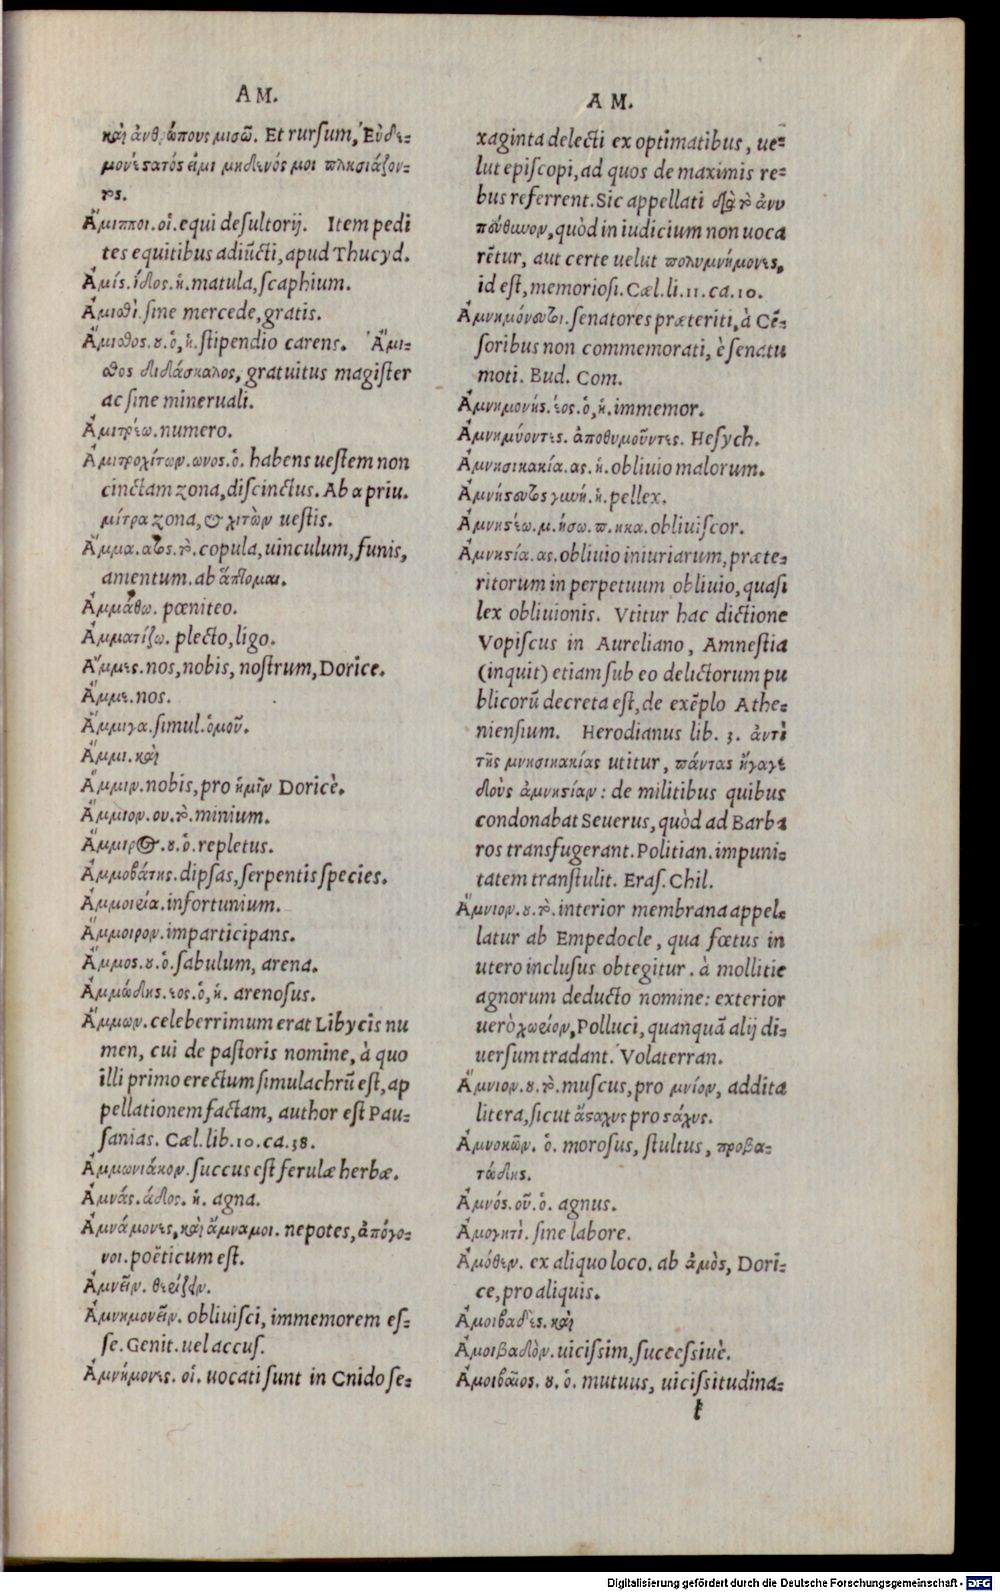 AM.
καὶ ἀνθρώπους μισῶ. Et rursum, Εὐδαι-
μονέστατός εἰμι μηδενός μοι πλησιάζον-
τος.
Ἄμιπποι. οἱ. equi desultorij. Item pedi
tes equitibus adiūcti, apud Thucyd.
Ἀμίς. ίδος. ἡ. matula, scaphium.
Ἀμισθὶ. sine mercede, gratis.
Ἄμισθος. ου. ὁ, ἡ. stipendio carens. Ἄμι-
σθος διδάσκαλος, gratuitus magister
ac sine mineruali.
Ἀμιτρέω. numero.
Ἀμιτροχίτων. ωνος. ὁ. habens uestem non
cinctam zona, discinctus. Ab α priu.
μίτρα zona, & χιτὼν uestis.
Ἄμμα. ατος. τὸ. copula, uinculum, funis,
amentum. ab ἅπτομαι.
Ἀμμάθω. pœniteo.
Ἀμματίζω. plecto, ligo.
Ἄμμες. nos, nobis, nostrum, Dorice.
Ἄμμε. nos.
Ἄμμιγα. simul. ὁμοῦ.
Ἄμμι. καὶ
Ἄμμιν. nobis, pro ἡμῖν Doricè.
Ἄμμιον. ου. τὸ. minium.
Ἄμμιρος. ου. ὁ. repletus.
Ἀμμοβάτης. dipsas, serpentis species.
Ἀμμορία. infortunium.
Ἄμμοιρον. imparticipans.
Ἄμμος. ου. ὁ. sabulum, arena.
Ἀμμώδης. εος. ὁ, ἡ. arenosus.
Ἄμμων. celeberrimum erat Libycis nu
men, cui de pastoris nomine, à quo
illi primo erectum simulachrū est, ap
pellationem factam, author est Pau-
sanias. Cæl. lib. 10. ca. 38.
Ἀμμωνιάκον. succus est ferulæ herbæ.
Ἀμνάς. άδος. ἡ. agna.
Ἀμνάμονες, καὶ ἄμναμοι. nepotes, ἀπόγο-
νοι. poëticum est.
Ἀμνεῖν. θερίζειν.
Ἀμνημονεῖν. obliuisci, immemorem es-
se. Genit. uel accus.
Ἀμνήμονες. οἱ. uocati sunt in Cnido se-
AM.
xaginta delecti ex optimatibus, ue-
lut episcopi, ad quos de maximis re-
bus referrent. Sic appellati διὰ τὸ ἀνυ
πεύθυνον, quòd in iudicium non uoca
rētur, aut certe uelut πολυμνήμονες,
id est, memoriosi. Cæl. li. 11. ca. 10.
Ἀμνημόνευτοι. senatores præteriti, à Cē-
soribus non commemorati, è senatu
moti. Bud. Com.
Ἀμνημονής. έος. ὁ, ἡ. immemor.
Ἀμνημύοντες. ἀποθυμοῦντες. Hesych.
Ἀμνησικακία. ας. ἡ. obliuio malorum.
Ἀμνήστευτος γυνή. ἡ. pellex.
Ἀμνηστέω. μ. ήσω. π. ηκα. obliuiscor.
Ἀμνηστία. ας. obliuio iniuriarum, præte-
ritorum in perpetuum obliuio, quasi
lex obliuionis. Vtitur hac dictione
Vopiscus in Aureliano, Amnestia
(inquit) etiam sub eo delictorum pu
blicorū decreta est, de exēplo Athe-
niensium. Herodianus lib. 3. ἀντὶ
τῆς μνησικακίας utitur, πάντας ἤγαγε
διοὺς ἀμνηστίαν: de militibus quibus
condonabat Seuerus, quòd ad Barba
ros transfugerant. Politian. impuni-
tatem transtulit. Eras. Chil.
Ἄμνιον. ου. τὸ. interior membrana appel-
latur ab Empedocle, qua fœtus in
utero inclusus obtegitur. à mollitie
agnorum deducto nomine: exterior
uerò χωρίον, Polluci, quanquā alij di-
uersum tradant. Volaterran.
Ἄμνιον. ου. τὸ. muscus, pro μνίον, addita
litera, sicut ἄσταχυς pro στάχυς.
Ἀμνοκῶν. ὁ. morosus, stultus, προβα-
τώδης.
Ἀμνός. οῦ. ὁ. agnus.
Ἀμογητὶ. sine labore.
Ἀμόθεν. ex aliquo loco. ab ἀμὸς, Dori-
ce, pro aliquis.
Ἀμοιβαδὶς. καὶ
Ἀμοιβαδὸν. uicissim, successiuè.
Ἀμοιβαῖος. ου. ὁ. mutuus, uicissitudina-
Digitalisierung gefördert durch die Deutsche Forschungsgemeinschaft - DFG